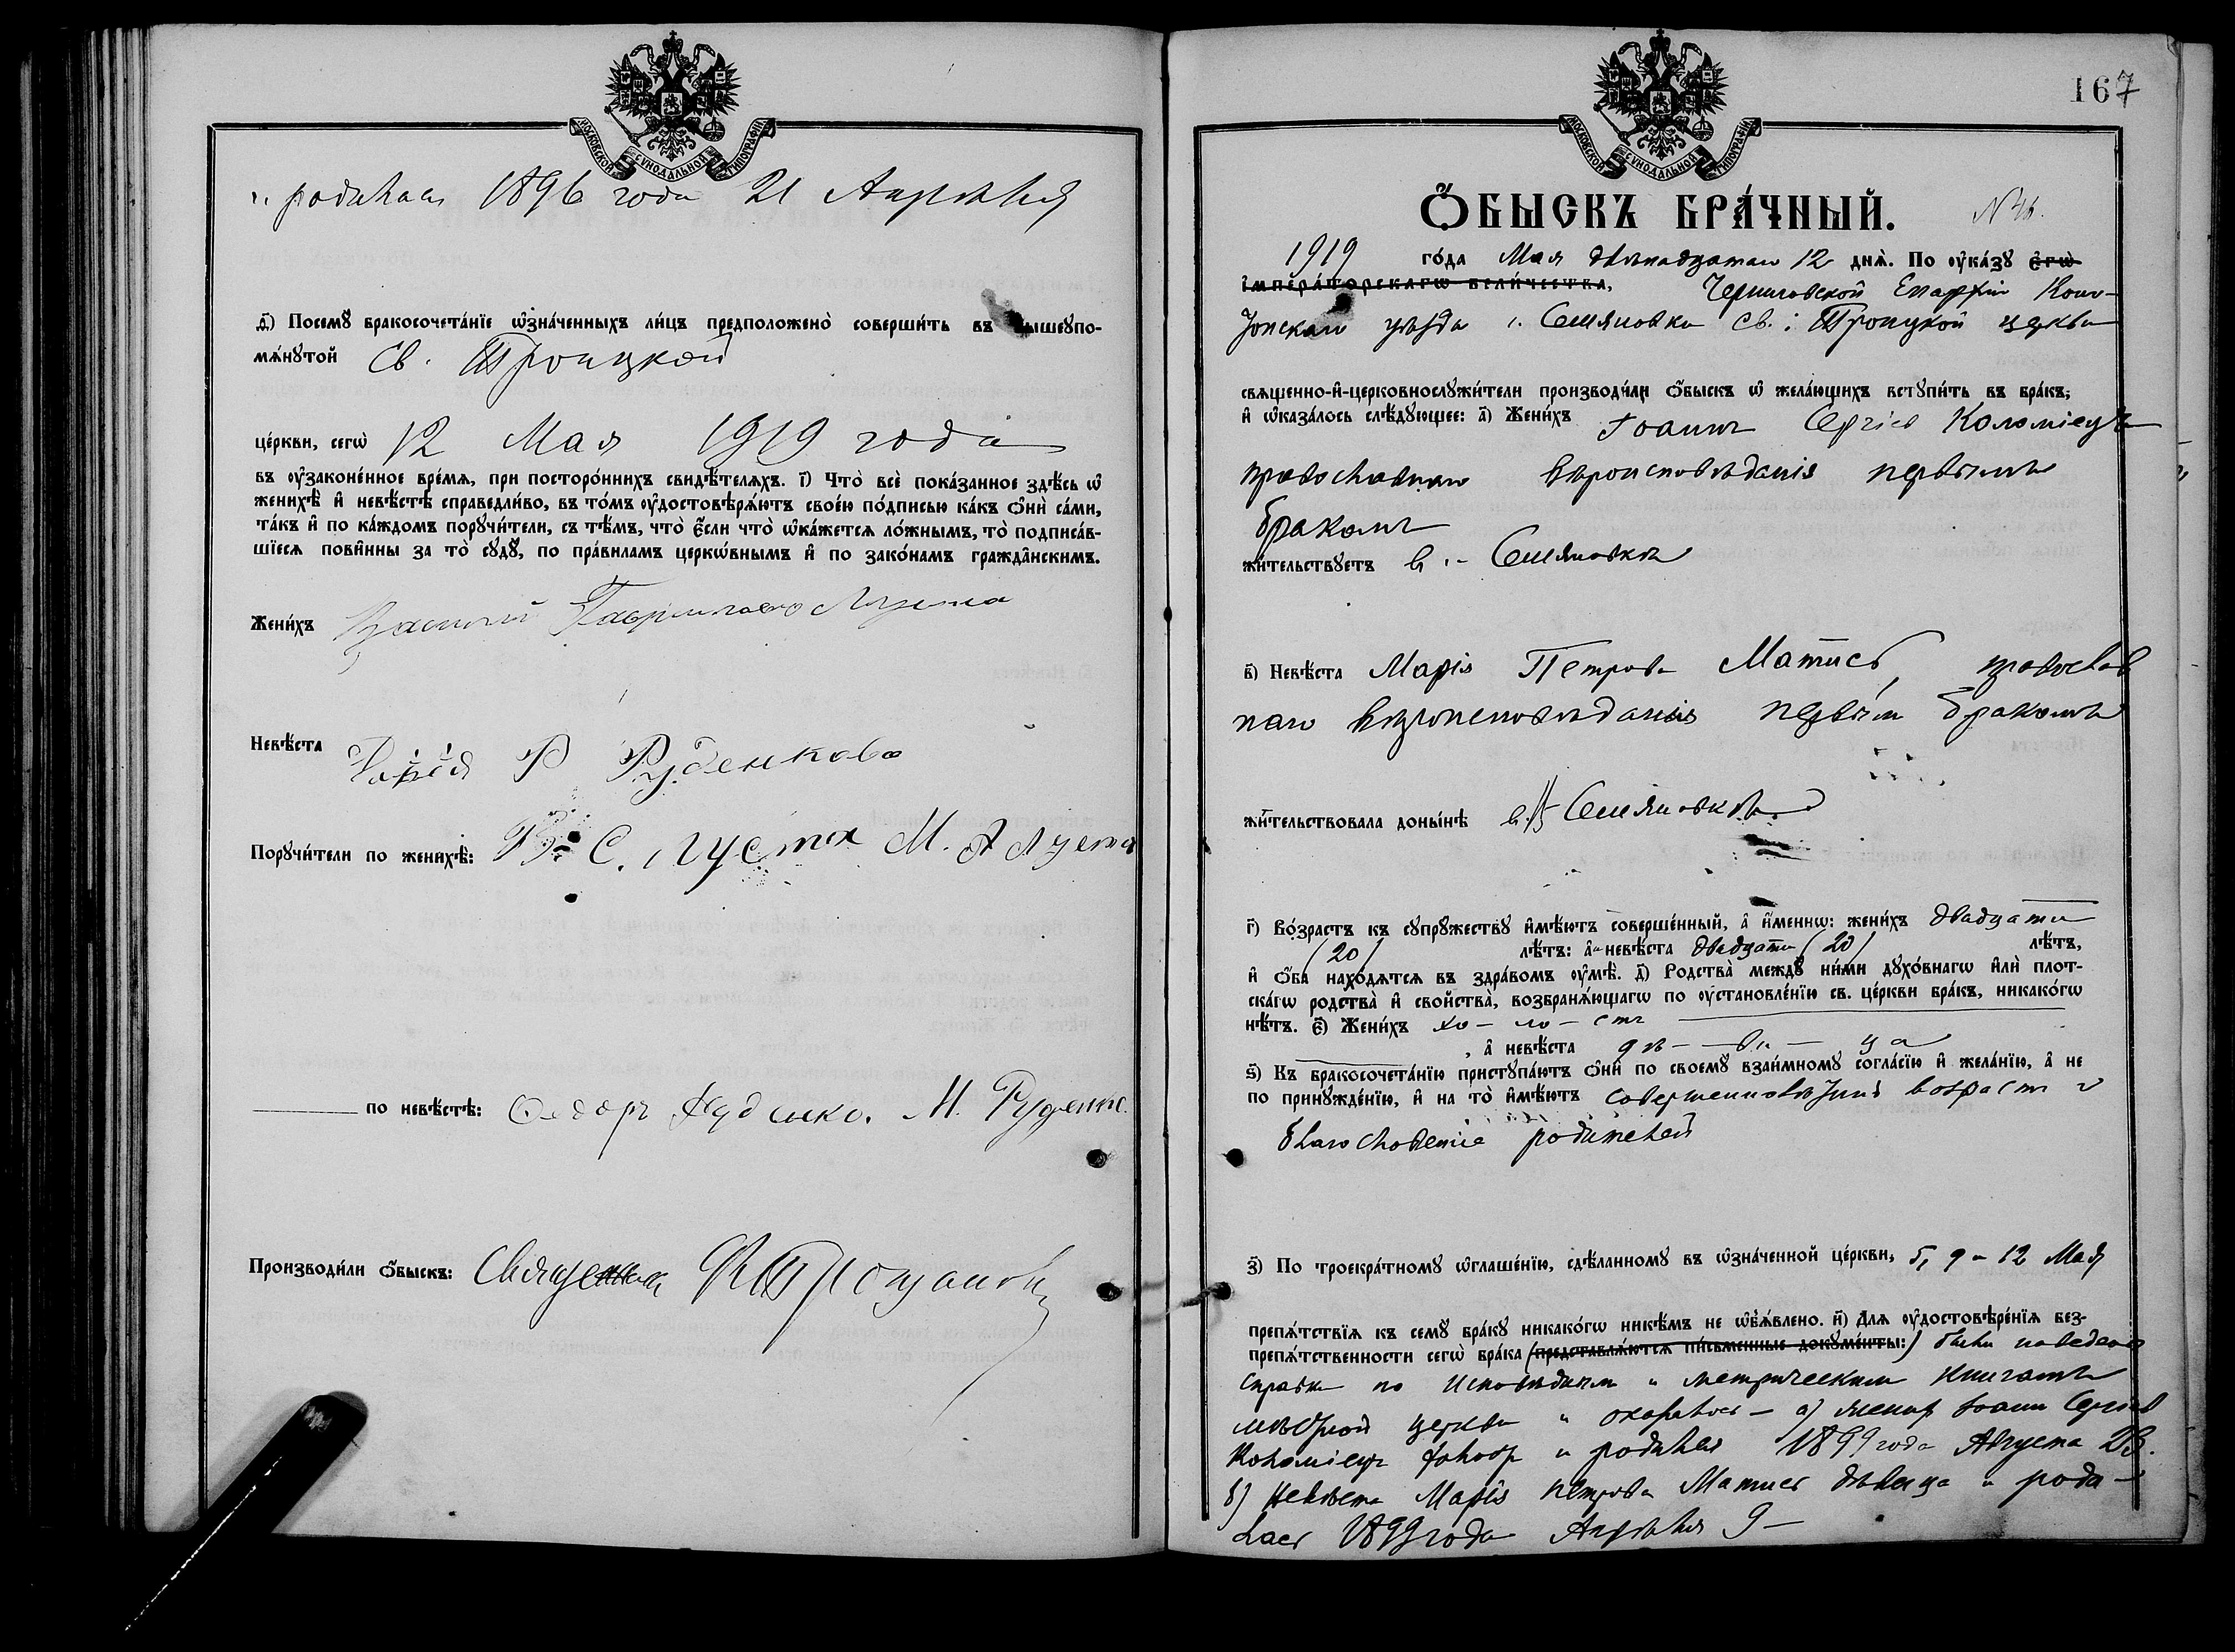 МОСКОВСКОЙ СѴНОДАЛЬНОЙ ТИПОГРАФІИ
и родилась 1896 года 21 Апрѣля
д҃) Посемꙋ бракосочета́нїе ѡ҆зна́ченныхъ ли́цъ предположено̀ соверши́ть въ вышеꙋпо-
мѧ́нꙋтой Св. Троицкой
це́ркви, сегѡ̀ 12 Мая 1919 года
въ ᲂу҆законе́нное вре́мѧ, при посторо́ннихъ свидѣ́телѧхъ. і҃) Что̀ всѐ пока́занное здѣ́сь ѡ҆
женихѣ̀ и҆ невѣ́стѣ справедли́во, въ то́мъ ᲂу҆достовѣрѧ́ютъ свое́ю по́дписью ка́къ ѻ҆нѝ са́ми,
та́къ и҆ по ка́ждомъ порꙋчи́тели, съ тѣ́мъ, что̀ є҆́сли что̀ ѡ҆ка́жетсѧ ло́жнымъ, то̀ подписа́в-
шїесѧ пови́нны за то̀ сꙋдꙋ̀, по пра́виламъ церко́внымъ и҆ по зако́намъ гражда́нскимъ.
Жени́хъ Василий Гаврилово Луста
Невѣ́ста Р Руденкова
Порꙋчи́тели по женихѣ̀: С. Луста М. А Луста
по невѣ́стѣ: Ѳедоръ Руденко. М. Руденко.
Производи́ли ѻ҆́быскъ: Священник
167
МОСКОВСКОЙ СѴНОДАЛЬНОЙ ТИПОГРАФІИ
Ѻ҆́БЫСКЪ БРА́ЧНЫЙ. N 46.
1919 го́да Мая двѣнадцатаго 12 днѧ̀. По ᲂу҆ка́зꙋ є҆гѡ̀
і҆мпера́торскагѡ вели́чества, Черниговской Епархіи Коно-
топскаго уѣзда с. Семяновка Св. Троицкой церкви
свѧще́нно-и҆-церковнослꙋжи́тели производи́ли ѻ҆́быскъ ѡ҆ жела́ющихъ встꙋпи́ть въ бра́къ;
и҆ ѡ҆каза́лось слѣ́дꙋющее: а҃) Жени́хъ Іоаннъ Сергіевъ Коломіецъ
православнаго вѣроисповѣданія первымъ
бракомъ
жи́тельствꙋетъ в с. Семяновкѣ
в҃) Невѣ́ста Марія Петрова Матисъ, православ
наго вѣроисповѣданія первымъ бракомъ
жи́тельствовала доны́нѣ в с. Семяновкѣ
г҃) Во́зрастъ къ сꙋпрꙋ́жествꙋ и҆мѣ́ютъ соверше́нный, а҆ и҆́меннѡ: жени́хъ двадцати
(20) лѣ́тъ: а҆ невѣ́ста двадцати (20) лѣ́тъ,
и҆ ѻ҆́ба нахо́дѧтсѧ въ здра́вомъ ᲂу҆мѣ̀. д҃) Родства̀ междꙋ̀ ни́ми дꙋхо́внагѡ и҆лѝ плот-
ска́гѡ родства̀ и҆ свойства̀, возбранѧ́ющагѡ по ᲂу҆становле́нїю св. це́ркви бра́къ, никако́гѡ
нѣ́тъ. є҃) Жени́хъ хо - ло - стъ
, а҆ невѣ́ста дѣ - ви - ца
ѕ҃) Къ бракосочета́нїю пристꙋпа́ютъ ѻ҆нѝ по своемꙋ̀ взаи́мномꙋ согла́сїю и҆ жела́нїю, а҆ не
по принꙋжде́нїю, и҆ на то̀ и҆мѣ́ютъ совершеннолѣтній возраст и
благословеніе родителей
з҃) По троекра́тномꙋ ѡ҆глаше́нїю, сдѣ́ланномꙋ въ ѡ҆зна́ченной це́ркви, 5, 9 и 12 Мая
препѧ́тствїѧ къ семꙋ̀ бра́кꙋ никако́гѡ никѣ́мъ не ѡ҆б̾ѧ́влено. и҃) Длѧ ᲂу҆достовѣре́нїѧ без-
препѧ́тственности сегѡ̀ бра́ка (представлѧ́ютсѧ пи́сьменные докꙋме́нты:) были наведены
справки по исповѣднымъ и метрическимъ книгамъ
мѣстной церкви и оказалось - а) женихъ Іоаннъ Сергіевъ
Коломіецъ холостъ и родился 1899 года Августа 23.
б) Невѣста Марія Петрова Матисъ дѣвица и роди-
лась 1899 года Апрѣля 9 -